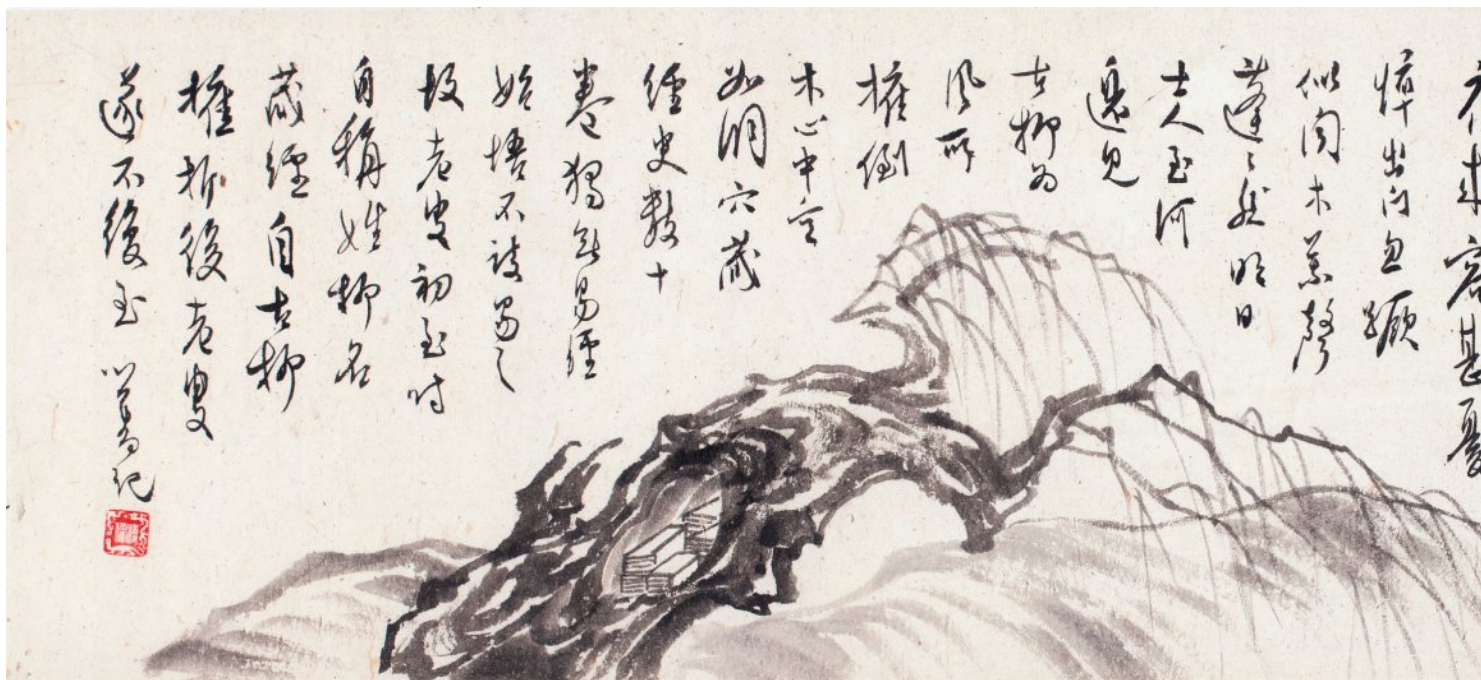 來窘甚憂
悸出門忽蹶
似聞木葉聲
蓬蓬然明日
士人至河
邊見
古柳為
風所
摧倒
木心中空
如洞穴藏
經史數十
卷獨無易經
始悟不談易之
故老叟初至時
自稱姓柳名
藏經自古柳
摧折後老叟
遂不復至 心畬記